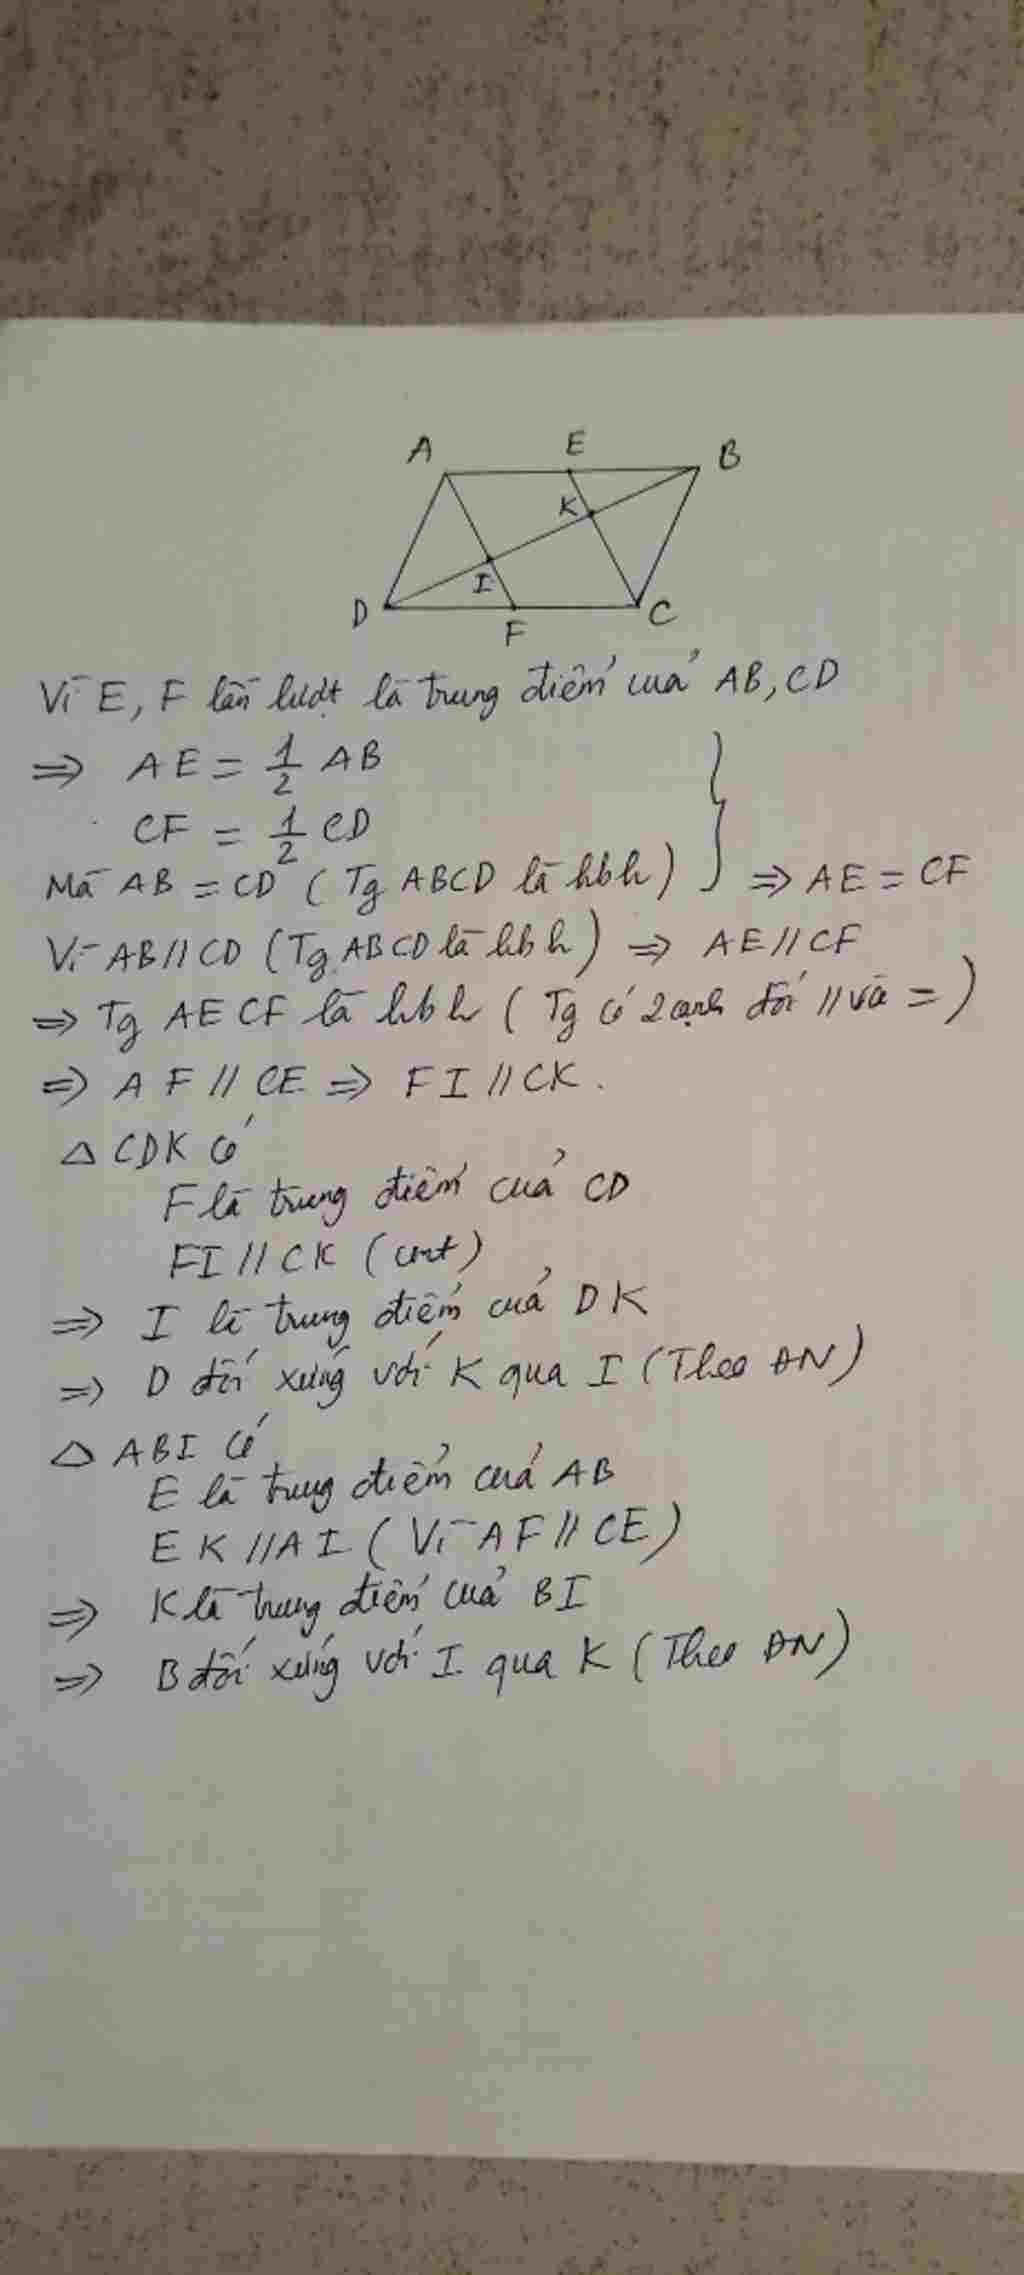 A E B
K
I
D F C
Vì E, F lần lượt là trung điểm của AB, CD
=> AE = 1/2 AB
CF = 1/2 CD
Mà AB = CD ( Tg ABCD là hbh ) } => AE = CF
Vì AB // CD ( Tg ABCD là hbh ) => AE // CF
=> Tg AECF là hbh ( Tg có 2 cạnh đối // và = )
=> AF // CE => FI // CK.
Δ CDK có
F là trung điểm của CD
FI // CK (cmt)
=> I là trung điểm của DK
=> D đối xứng với K qua I (Theo ĐN)
Δ ABI có
E là trung điểm của AB
EK // AI ( Vì AF // CE )
=> K là trung điểm của BI
=> B đối xứng với I qua K (Theo ĐN)